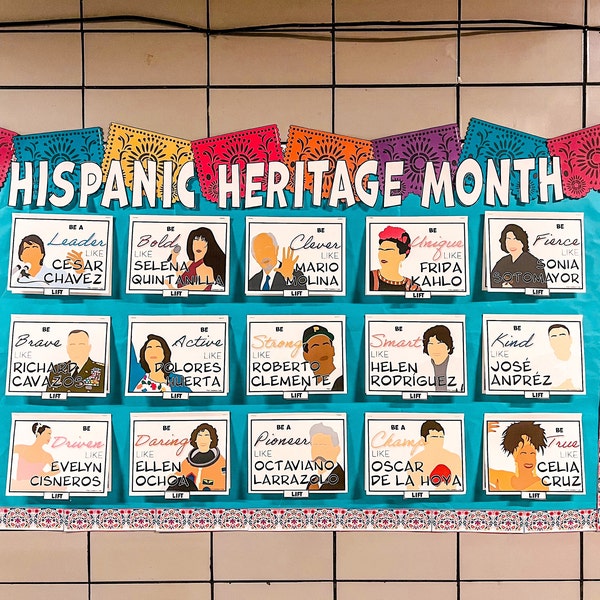 HISPANIC HERITAGE MONTH
BE A
Leader
LIKE
CÉSAR
CHÁVEZ
LIFT
BE
Bold
LIKE
SELENA
QUINTANILLA
LIFT
BE
Clever
LIKE
MARIO
MOLINA
LIFT
BE
Unique
LIKE
FRIDA
KAHLO
LIFT
BE
Fierce
LIKE
SONIA
SOTOMAYOR
LIFT
BE
Brave
LIKE
RICHARD
CAVAZOS
LIFT
BE
Active
LIKE
DOLORES
HUERTA
LIFT
BE
Strong
LIKE
ROBERTO
CLEMENTE
LIFT
BE
Smart
LIKE
HELEN
RODRÍGUEZ
LIFT
BE
Kind
LIKE
JOSÉ
ANDRÉZ
LIFT
BE
Driven
LIKE
EVELYN
CISNEROS
LIFT
BE
Daring
LIKE
ELLEN
OCHOA
LIFT
BE A
Pioneer
LIKE
OCTAVIANO
LARRAZOLO
LIFT
BE A
Champ
LIKE
OSCAR
DE LA HOYA
LIFT
BE
True
LIKE
CELIA
CRUZ
LIFT